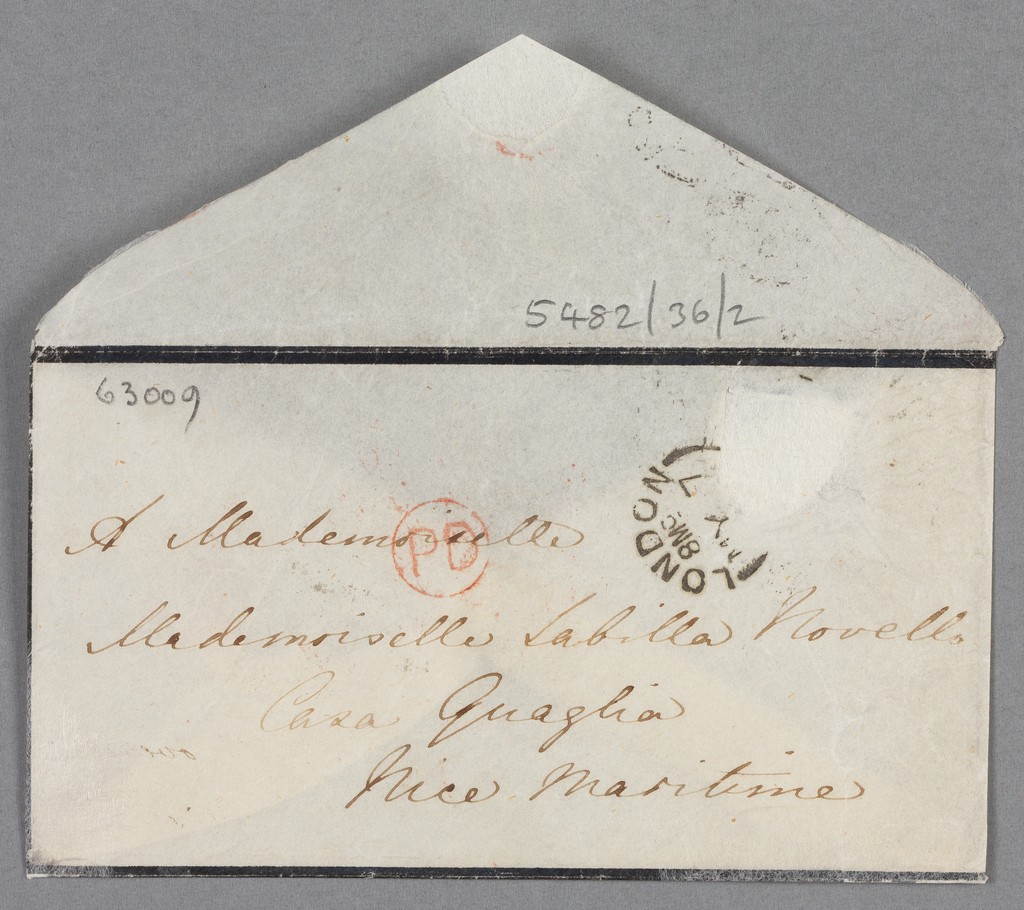 5482/36/2
63009
LONDON
7
MY
8
A Mademoiselle
PD
Mademoiselle Sabilla Novello
Casa Quaglia
Nice Maritime